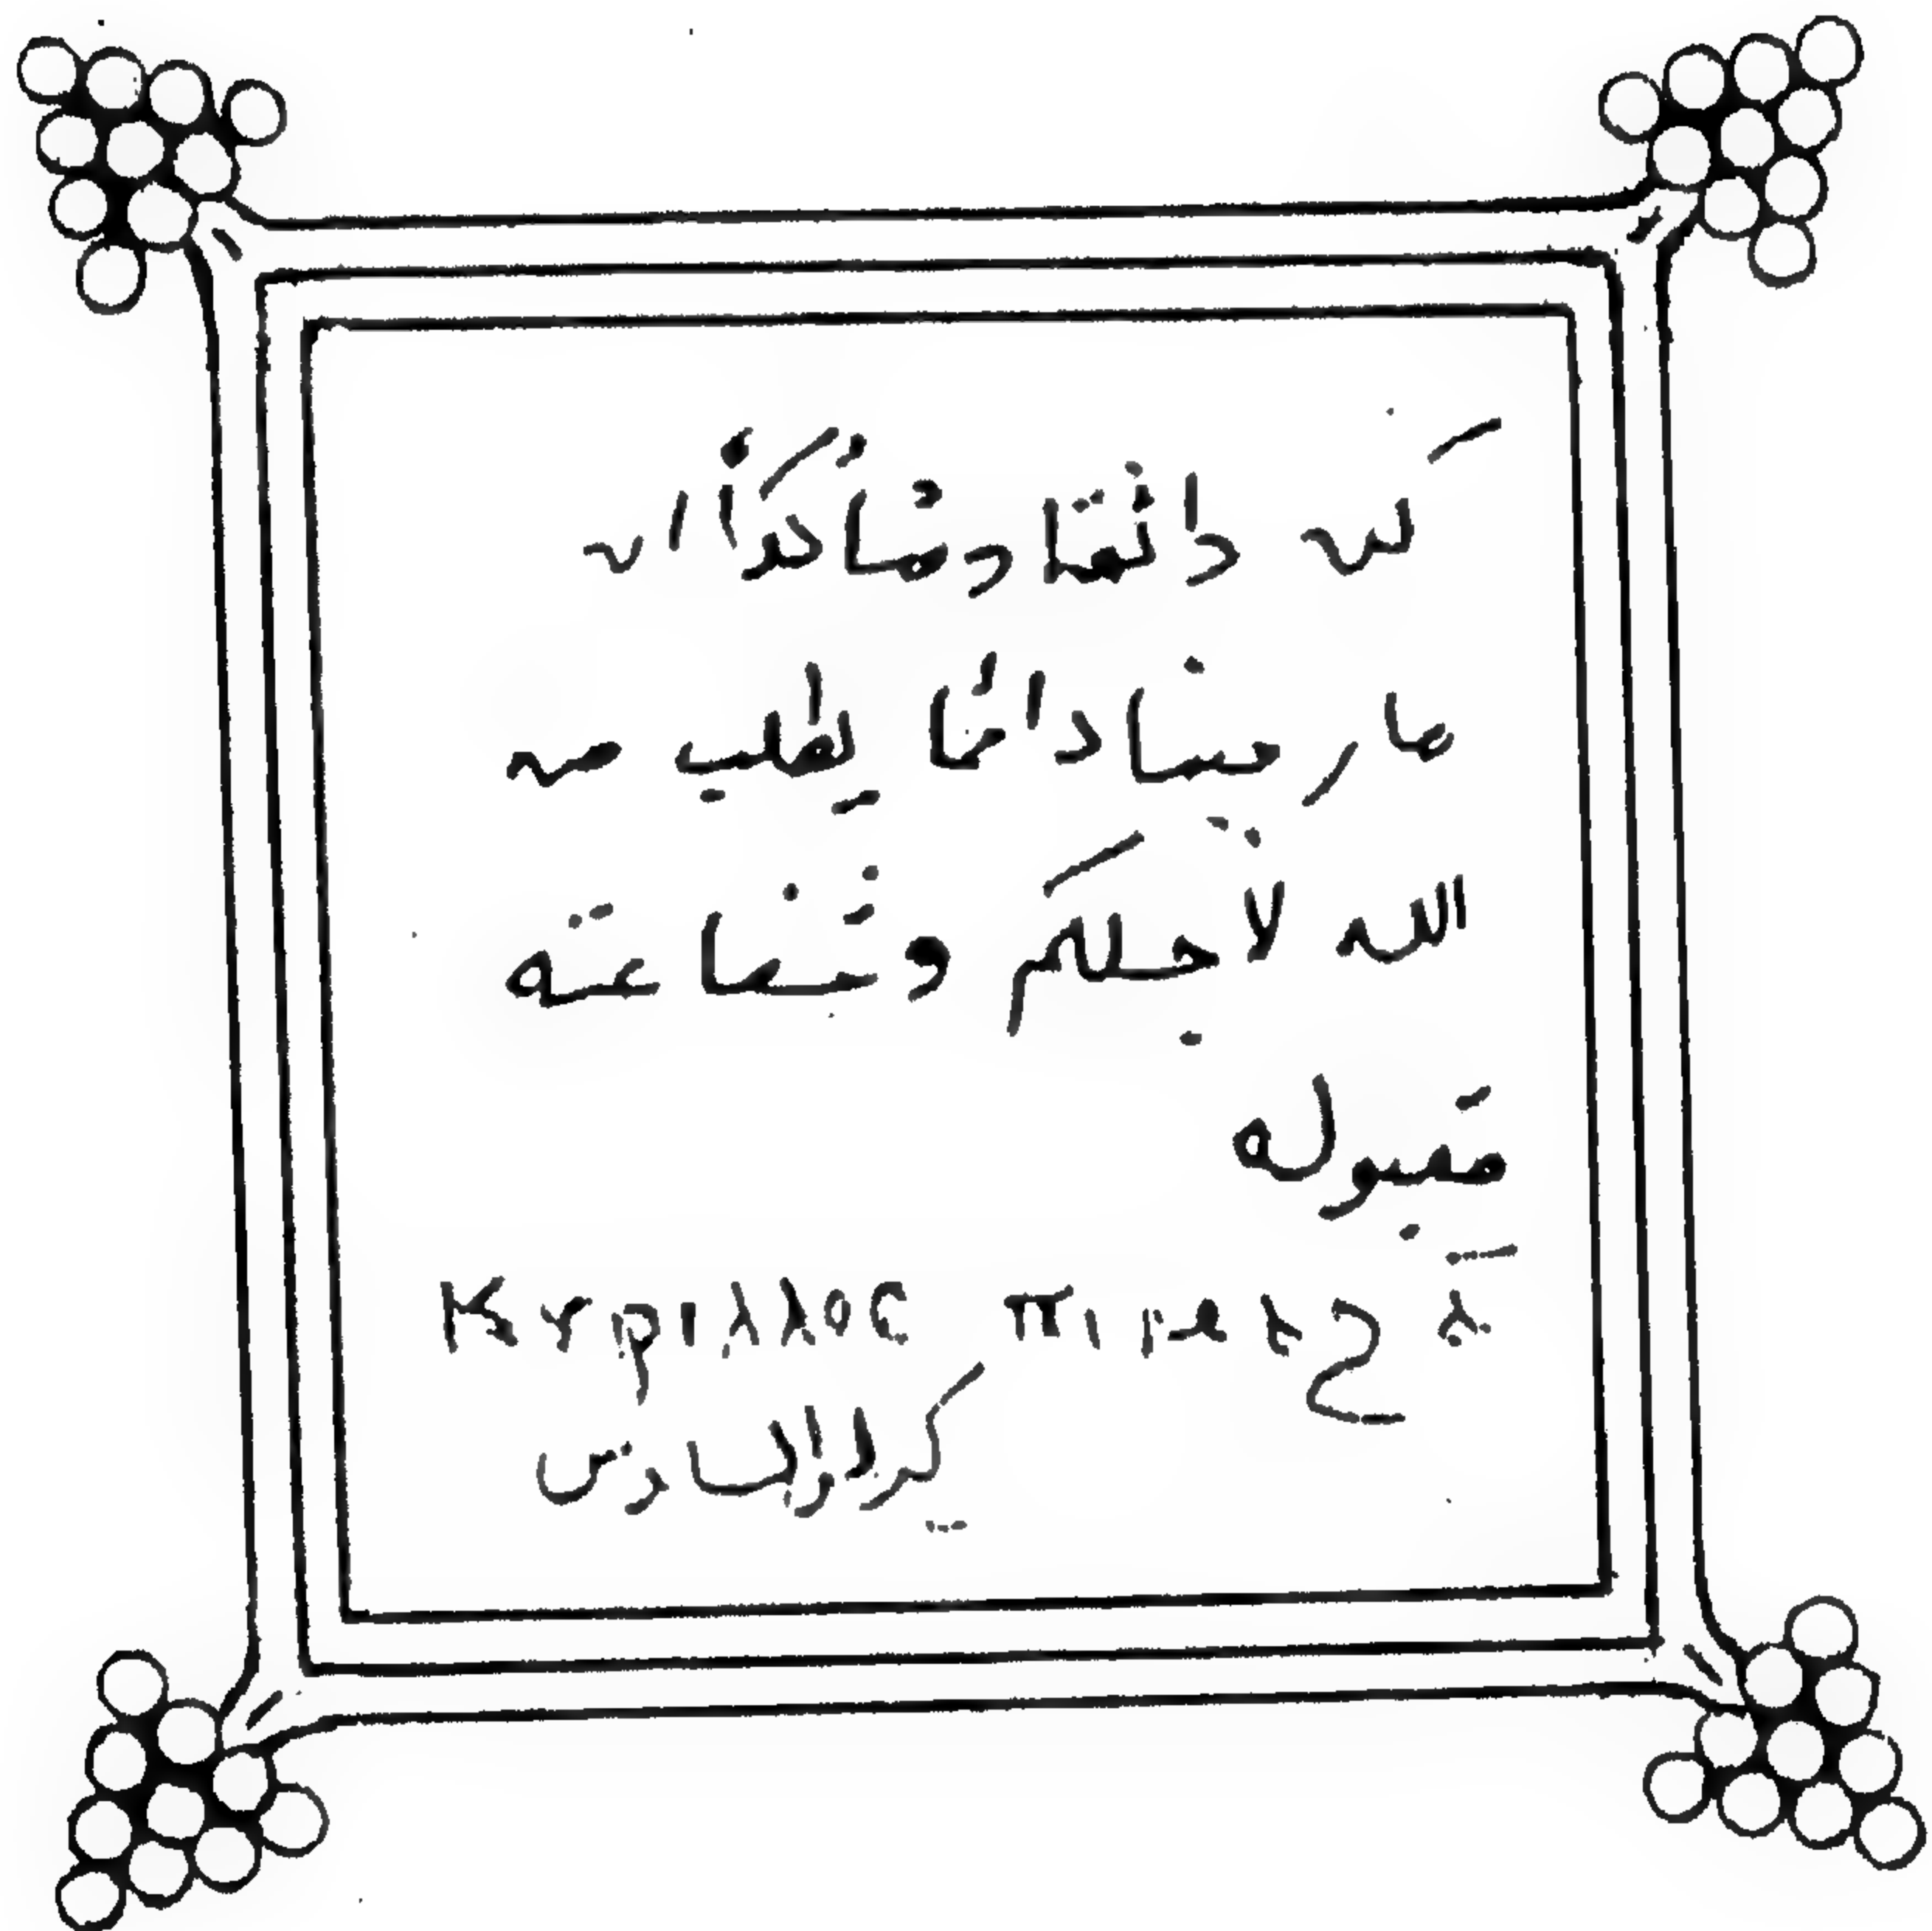 كن واثقا وشاكرا ان
مار مينا دائما يطلب من
الله لأجلكم وشفاعته
مقبولة
Ⲕⲩⲣⲓⲗⲗⲟⲥ ⲡⲓⲙⲁϩ
كيرلس السادس